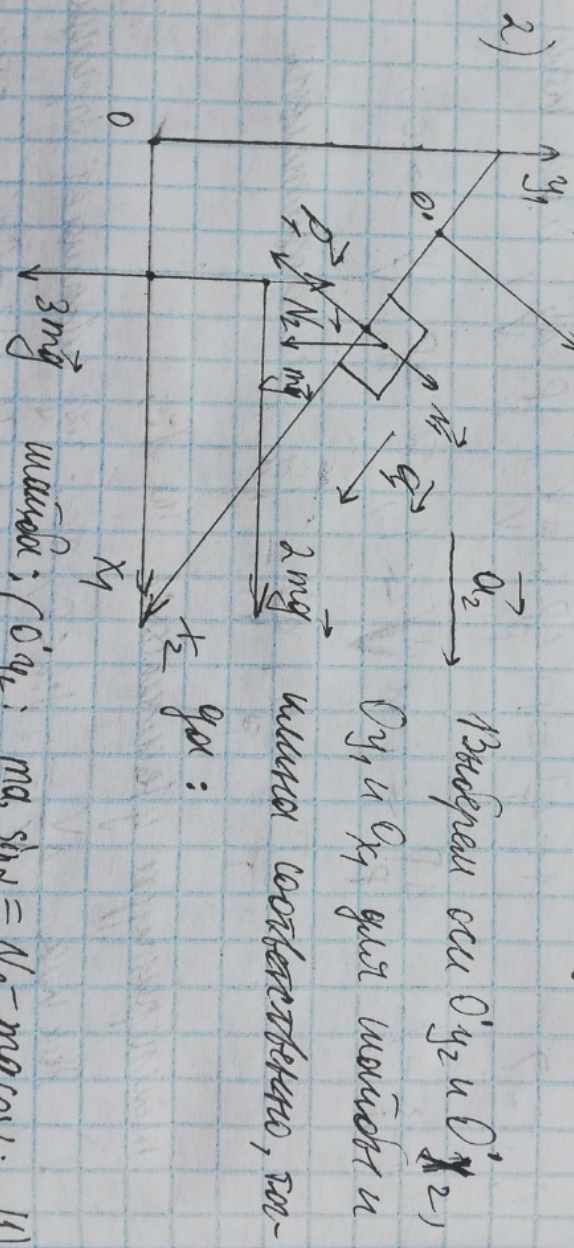 2)
y₁
O'
O
P⃗₁
N₂
mg⃗
N⃗
a⃗₂
2mg⃗
3mg⃗
x₁
x₂
Выберем оси O'y₂ и O'x₂,
Oy₁ и Ox₁ для шайбы и
клина соответственно, тог-
да:
шайба: O'y₂: ma₂ sinα = N₂ - mg cosα; (1)